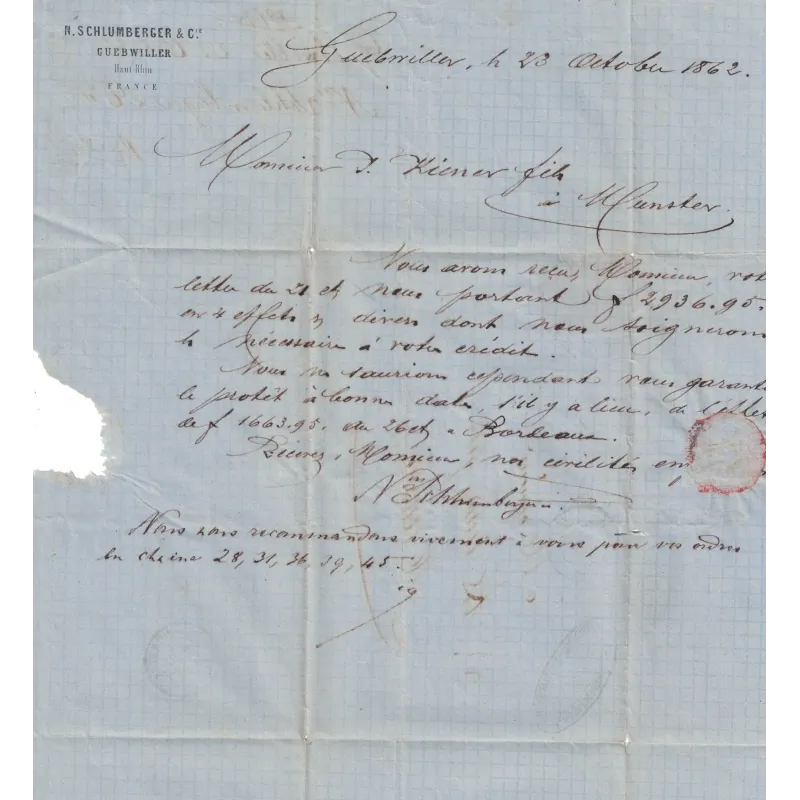 N. SCHLUMBERGER & C.ie
GUEBWILLER
Haut-Rhin
FRANCE
Guebwiller, le 23 Octobre 1862.
Monsieur J. Kiener fils
à Munster.
Nous avons reçu, Monsieur, vot
lettre du 21 ct nous portant f 2936.95.
en 4 effets s/ divers dont nous soignerons
le nécessaire à votre crédit.
Nous ne saurions cependant vous garant
le protêt à bonne date, s'il y a lieu, de l'effet
de f 1663.95. du 26 ct s/ Bordeaux.
Recevez, Monsieur, nos civilités emp
N Schlumberger
Nous nous recommandons vivement à vous pour vos ordres
en chaine 28, 31, 36, 39, 45.